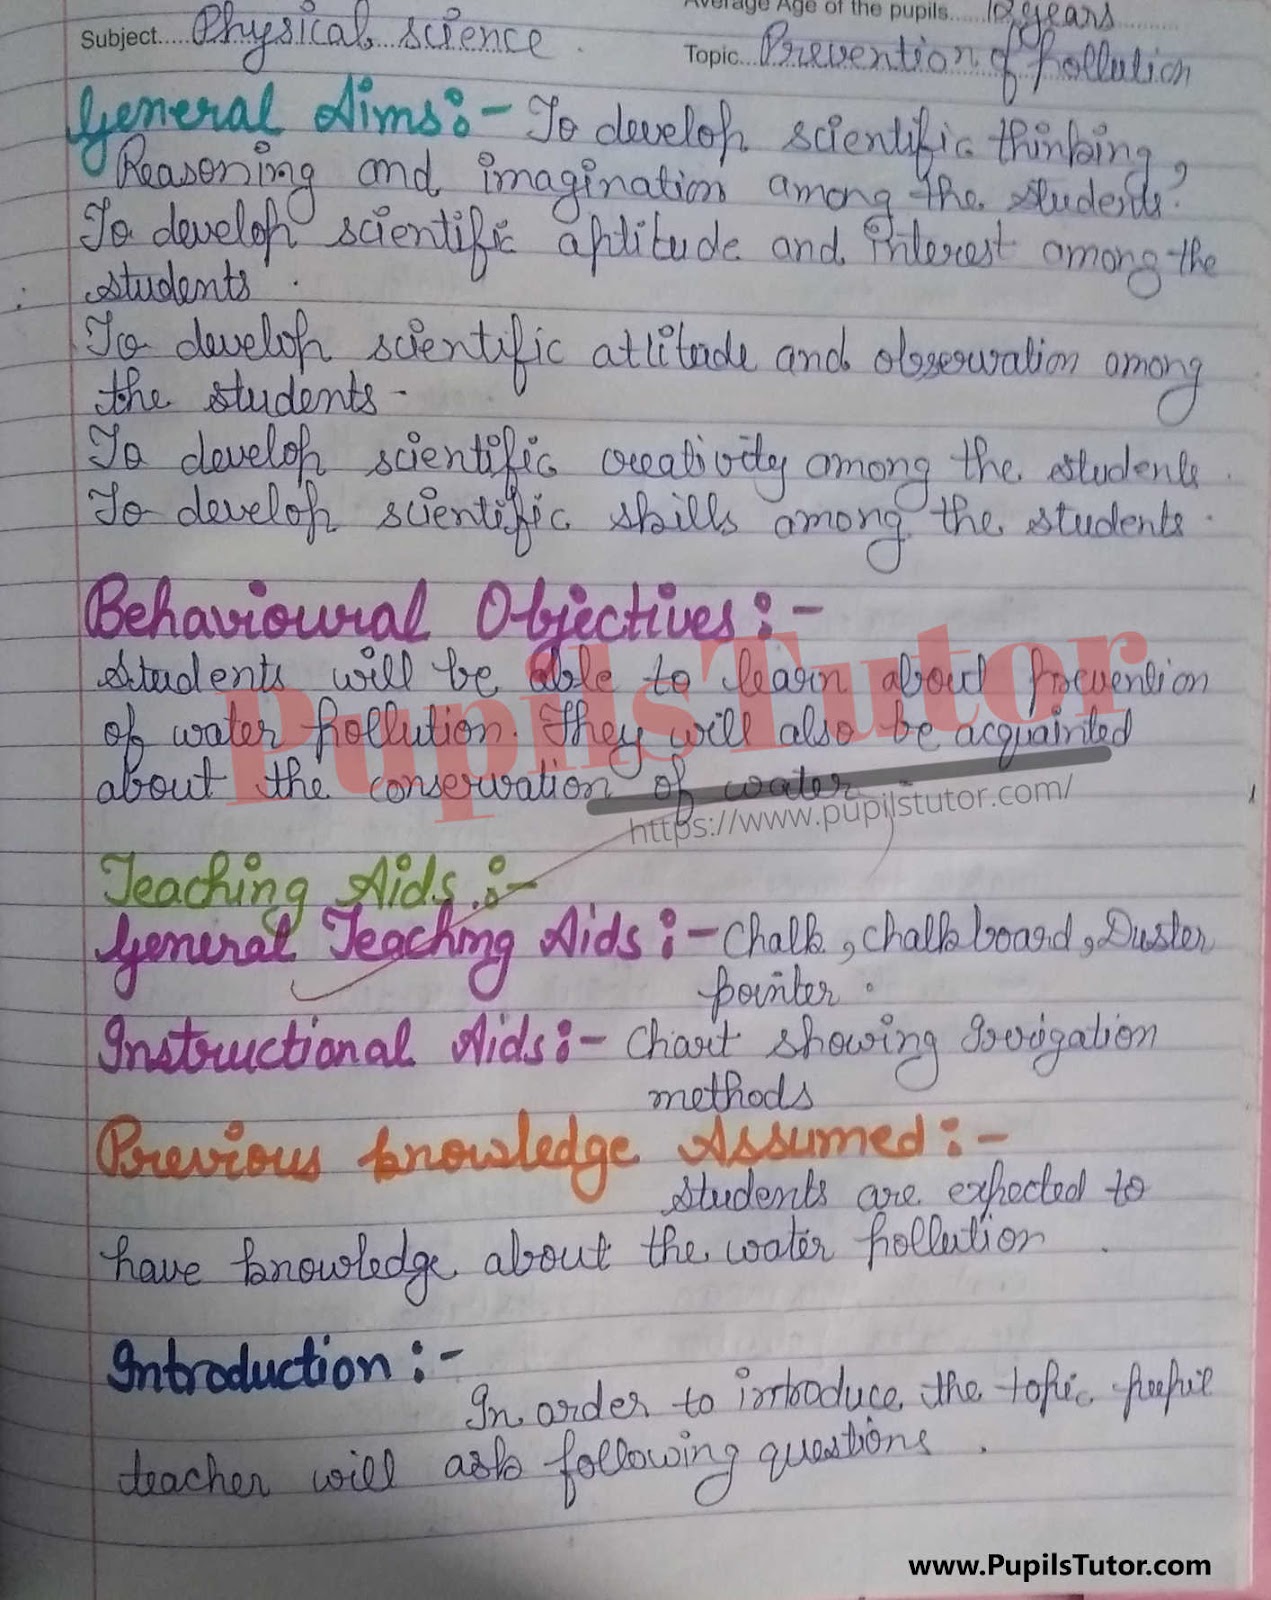 Average Age of the pupils......12 years
Subject.....Physical science.
Topic...Prevention of Pollution
General Aims:- To develop scientific thinking,
Reasoning and imagination among the students.
To develop scientific aptitude and interest among the
students.
To develop scientific attitude and observation among
the students.
To develop scientific creativity among the students.
To develop scientific skills among the students.
Behavioural Objectives:-
Students will be able to learn about prevention
of water pollution. They will also be acquainted
about the conservation of water.
PupilsTutor
https://www.pupilstutor.com/
Teaching Aids:-
General Teaching Aids:- Chalk, chalkboard, Duster
pointer.
Instructional Aids:- Chart showing Irrigation
methods
Previous knowledge Assumed:-
students are expected to
have knowledge about the water pollution.
Introduction:-
In order to introduce the topic pupil
teacher will ask following questions.
www.PupilsTutor.com